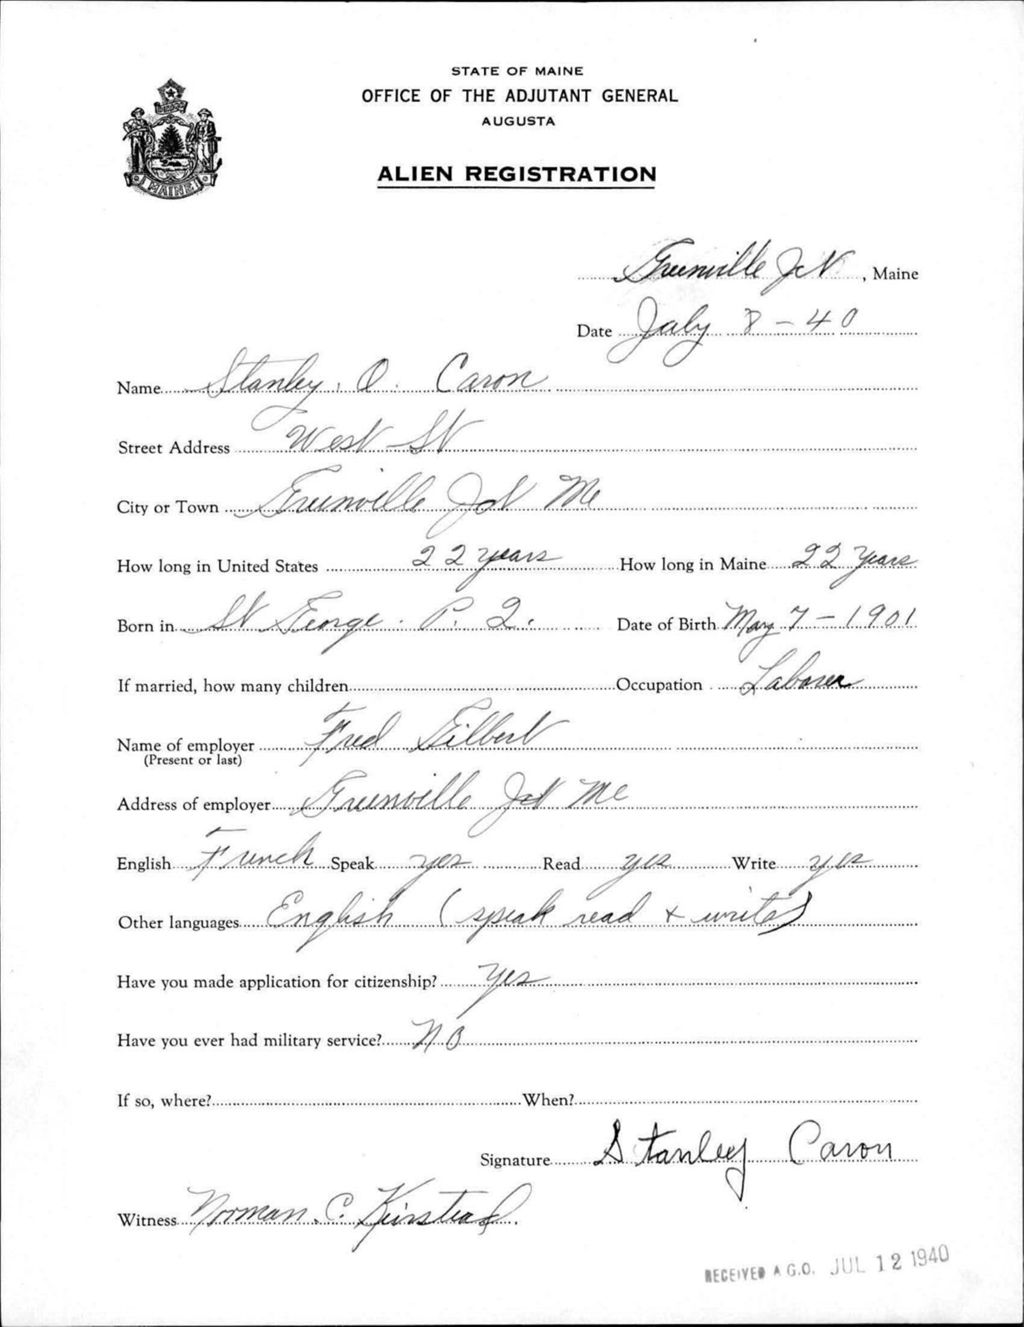 STATE OF MAINE
OFFICE OF THE ADJUTANT GENERAL
AUGUSTA
ALIEN REGISTRATION
MAINE
Greenville Jct, Maine
Date July 8 - 40
Name Stanley. O. Caron
Street Address West St
City or Town Greenville Jct Me
How long in United States 22 years How long in Maine 22 years
Born in St George. P. Q. Date of Birth May 7 - 1901
If married, how many children Occupation Laborer
Name of employer Fred Gilbert
(Present or last)
Address of employer Greenville Jct Me
English French Speak yes Read yes Write yes
Other languages English (speak read + write)
Have you made application for citizenship? Yes
Have you ever had military service? No
If so, where? When?
Signature Stanley Caron
Witness Norman. C. Keirstead.
RECEIVED A.G.O. JUL 12 1940